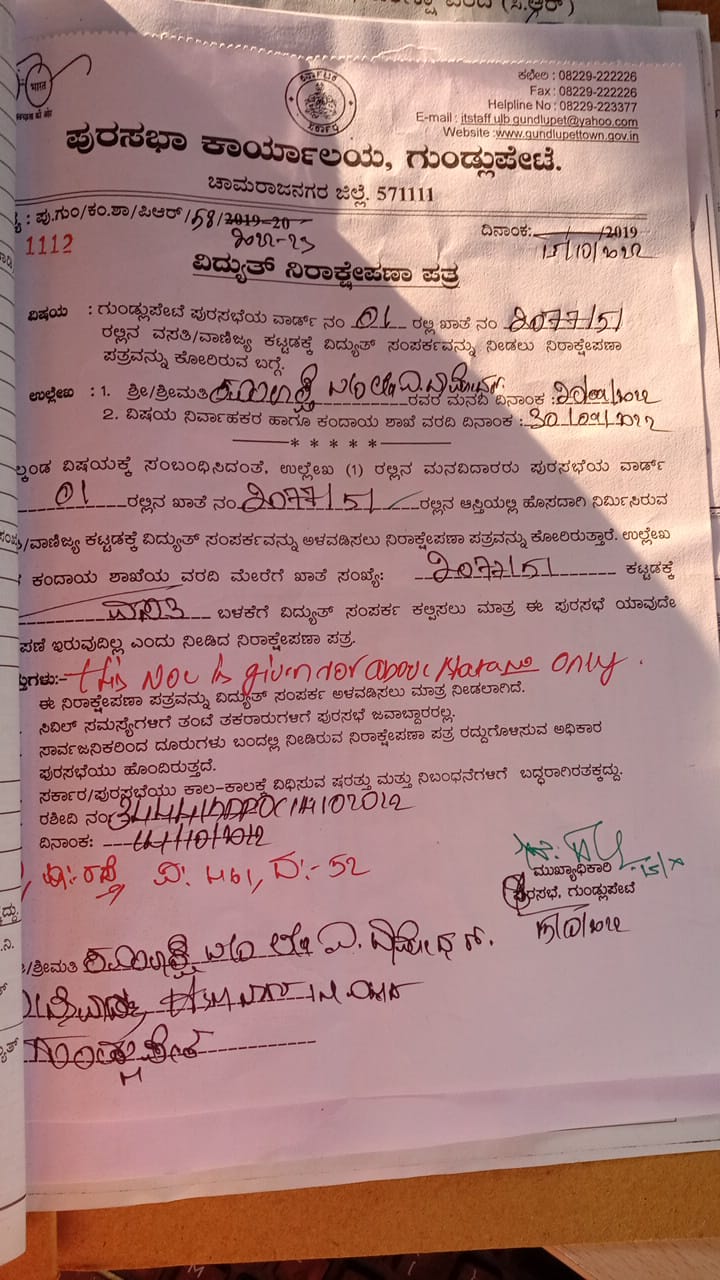 भारत
ಕಛೇರಿ : 08229-222226
Fax : 08229-222226
Helpline No : 08229-223377
E-mail : itstaff ulb.gundlupet@yahoo.com
Website :www.gundlupettown.gov.in
ಪುರಸಭಾ ಕಾರ್ಯಾಲಯ, ಗುಂಡ್ಲುಪೇಟೆ.
ಚಾಮರಾಜನಗರ ಜಿಲ್ಲೆ. 571111
: ಪು.ಗುಂ/ಕಂ.ಶಾ/ಪಿಆರ್/58/2019-20
2022-23
ದಿನಾಂಕ: / /2019
15/10/2022
1112
ವಿದ್ಯುತ್ ನಿರಾಕ್ಷೇಪಣಾ ಪತ್ರ
ವಿಷಯ : ಗುಂಡ್ಲುಪೇಟೆ ಪುರಸಭೆಯ ವಾರ್ಡ್ ನಂ 01 ರಲ್ಲಿ ಖಾತೆ ನಂ 2077/51
ರಲ್ಲಿನ ವಸತಿ/ವಾಣಿಜ್ಯ ಕಟ್ಟಡಕ್ಕೆ ವಿದ್ಯುತ್ ಸಂಪರ್ಕವನ್ನು ನೀಡಲು ನಿರಾಕ್ಷೇಪಣಾ
ಪತ್ರವನ್ನು ಕೋರಿರುವ ಬಗ್ಗೆ.
ಉಲ್ಲೇಖ : 1. ಶ್ರೀ/ಶ್ರೀಮತಿ ರವರ ಮನವಿ ದಿನಾಂಕ :
2. ವಿಷಯ ನಿರ್ವಾಹಕರ ಹಾಗೂ ಕಂದಾಯ ಶಾಖೆ ವರದಿ ದಿನಾಂಕ : 30/09/2022
* * * * *
ಲ್ಕಂಡ ವಿಷಯಕ್ಕೆ ಸಂಬಂಧಿಸಿದಂತೆ, ಉಲ್ಲೇಖ (1) ರಲ್ಲಿನ ಮನವಿದಾರರು ಪುರಸಭೆಯ ವಾರ್ಡ್
01 ರಲ್ಲಿನ ಖಾತೆ ನಂ 2077/51 ರಲ್ಲಿನ ಆಸ್ತಿಯಲ್ಲಿ ಹೊಸದಾಗಿ ನಿರ್ಮಿಸಿರುವ
/ವಾಣಿಜ್ಯ ಕಟ್ಟಡಕ್ಕೆ ವಿದ್ಯುತ್ ಸಂಪರ್ಕವನ್ನು ಅಳವಡಿಸಲು ನಿರಾಕ್ಷೇಪಣಾ ಪತ್ರವನ್ನು ಕೋರಿರುತ್ತಾರೆ. ಉಲ್ಲೇಖ
ಕಂದಾಯ ಶಾಖೆಯ ವರದಿ ಮೇರೆಗೆ ಖಾತೆ ಸಂಖ್ಯೆ: 2077/51 ಕಟ್ಟಡಕ್ಕೆ
ವಸತಿ ಬಳಕೆಗೆ ವಿದ್ಯುತ್ ಸಂಪರ್ಕ ಕಲ್ಪಿಸಲು ಮಾತ್ರ ಈ ಪುರಸಭೆ ಯಾವುದೇ
ಪಣೆ ಇರುವುದಿಲ್ಲ ಎಂದು ನೀಡಿದ ನಿರಾಕ್ಷೇಪಣಾ ಪತ್ರ.
ತುಗಳು:- this NOC is given for above katha no only.
ಈ ನಿರಾಕ್ಷೇಪಣಾ ಪತ್ರವನ್ನು ವಿದ್ಯುತ್ ಸಂಪರ್ಕ ಅಳವಡಿಸಲು ಮಾತ್ರ ನೀಡಲಾಗಿದೆ.
ಸಿವಿಲ್ ಸಮಸ್ಯೆಗಳಿಗೆ ತಂಟೆ ತಕರಾರುಗಳಿಗೆ ಪುರಸಭೆ ಜವಾಬ್ದಾರರಲ್ಲ.
ಸಾರ್ವಜನಿಕರಿಂದ ದೂರುಗಳು ಬಂದಲ್ಲಿ ನೀಡಿರುವ ನಿರಾಕ್ಷೇಪಣಾ ಪತ್ರ ರದ್ದುಗೊಳಿಸುವ ಅಧಿಕಾರ
ಪುರಸಭೆಯು ಹೊಂದಿರುತ್ತದೆ.
ಸರ್ಕಾರ/ಪುರಸಭೆಯು ಕಾಲ-ಕಾಲಕ್ಕೆ ವಿಧಿಸುವ ಷರತ್ತು ಮತ್ತು ನಿಬಂಧನೆಗಳಿಗೆ ಬದ್ಧರಾಗಿರತಕ್ಕದ್ದು.
ರಶೀದಿ ನಂ:
ದಿನಾಂಕ: 14/10/2022
ವಿ: 461, ದ:- 52
ಮುಖ್ಯಾಧಿಕಾರಿ
ಪುರಸಭೆ, ಗುಂಡ್ಲುಪೇಟೆ
15/10/2022
/ಶ್ರೀಮತಿ